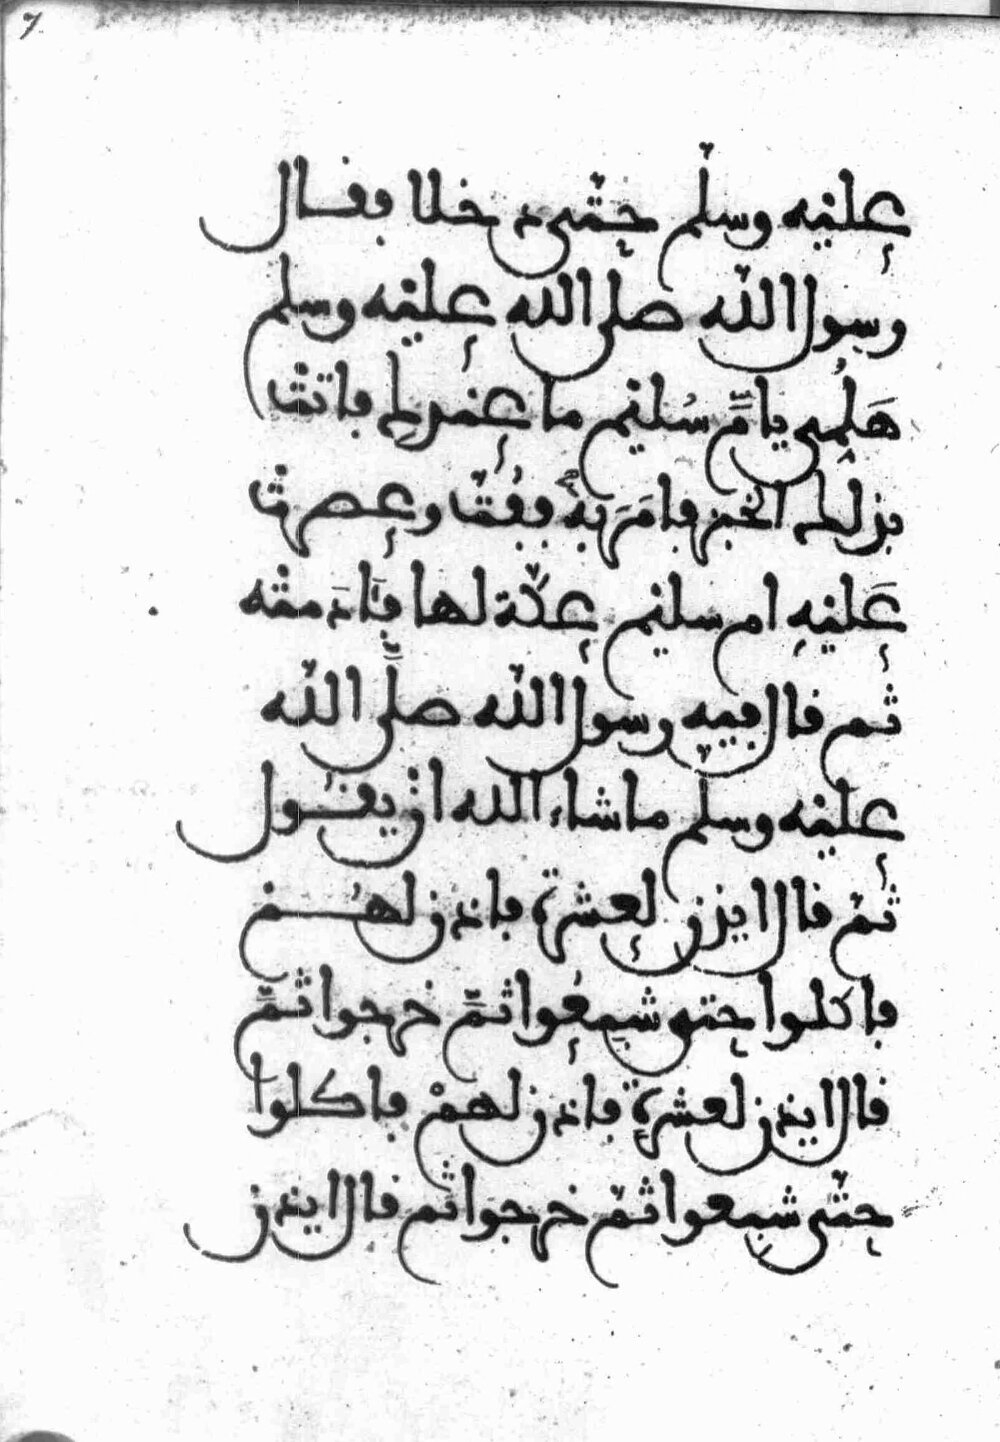 7
عليه وسلم حتى دخلا فقال
رسول الله صلى الله عليه وسلم
هَلُمِّى يا امَّ سُليم ما عندكِ فاتت
بذلك الخبز فامَرَ بهِ ففُتَّ وعصرت
عَليهِ ام سليم عكّة لها فَآدَمته
ثم قال فيه رسول الله صلَّى الله
عليه وسلم ما شاء الله ان يقول
ثم قال ايذن لعشرة فاذن لهُم
فاكلوا حتى شبِعُوا ثمَّ خرجوا ثمَّ
قال ايذن لعشرةٍ فاذن لهمْ فاكلوا
حتى شبِعوا ثم خرجوا ثم قال ايذن